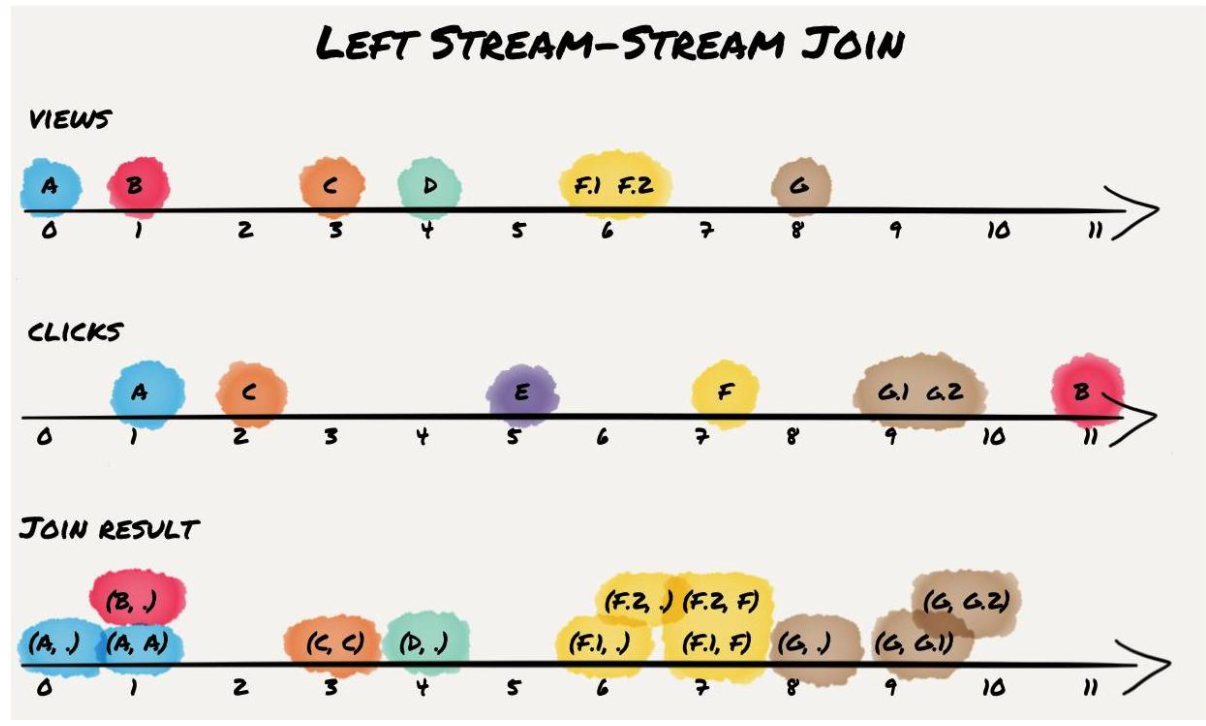 LEFT STREAM-STREAM JOIN
VIEWS
A B C D F.1 F.2 G
0 1 2 3 4 5 6 7 8 9 10 11
CLICKS
A C E F G.1 G.2 B
0 1 2 3 4 5 6 7 8 9 10 11
JOIN RESULT
(B, .) (F.2, .) (F.2, F) (G, G.2)
(A, .) (A, A) (C, C) (D, .) (F.1, .) (F.1, F) (G, .) (G, G.1)
0 1 2 3 4 5 6 7 8 9 10 11